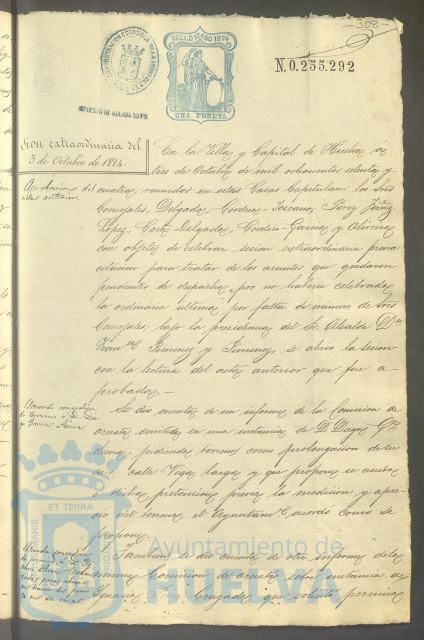 302
SELLO 11º AÑO 1874
UNA PESETA
N.0.255.292
IMPUESTO DE GUERRA 50 PS
sion extraordinaria del
3 de Octubre de 1874.
En la Villa y Capital de Huelva a
tres de Octubre de mil ochocientos setenta y
cuatro, reunidos en estas Casas Capitulares los Sres
Concejales, Delgado, Cordero, Toscano, Perez
Lopez, Delgado, Cordero Garcia y Olivera
con objeto de celebrar sesion extraordinaria previa
citacion para tratar de los asuntos que quedaron
pendientes de despacho, por no haberse celebrado
la ordinaria ultima por falta de numero de Sres
Concejales, bajo la presidencia del Sr. Alcalde Dn
Franco Jimenez y Jimenez, se abrio la sesion
con la lectura del acta anterior que fue a-
probada.—
Se dio cuenta de un informe de la Comision de
ornato, emitido en una instancia de D. Diego
pidiendo terreno como prolongacion de su
calle Vega larga y que propone se acceda
a dicha pretension previa la medicion y apre-
cio del terreno, el Ayuntamto acordó como se
propone.
Tambien se dio cuenta de otro informe de la
misma Comision de ornato sobre instancia de
Ignacio Cruzado, que solicita permiso
Aprobacion del
acta anterior.
Ayuntamiento de
HUELVA
ET TERRAE
MARIS